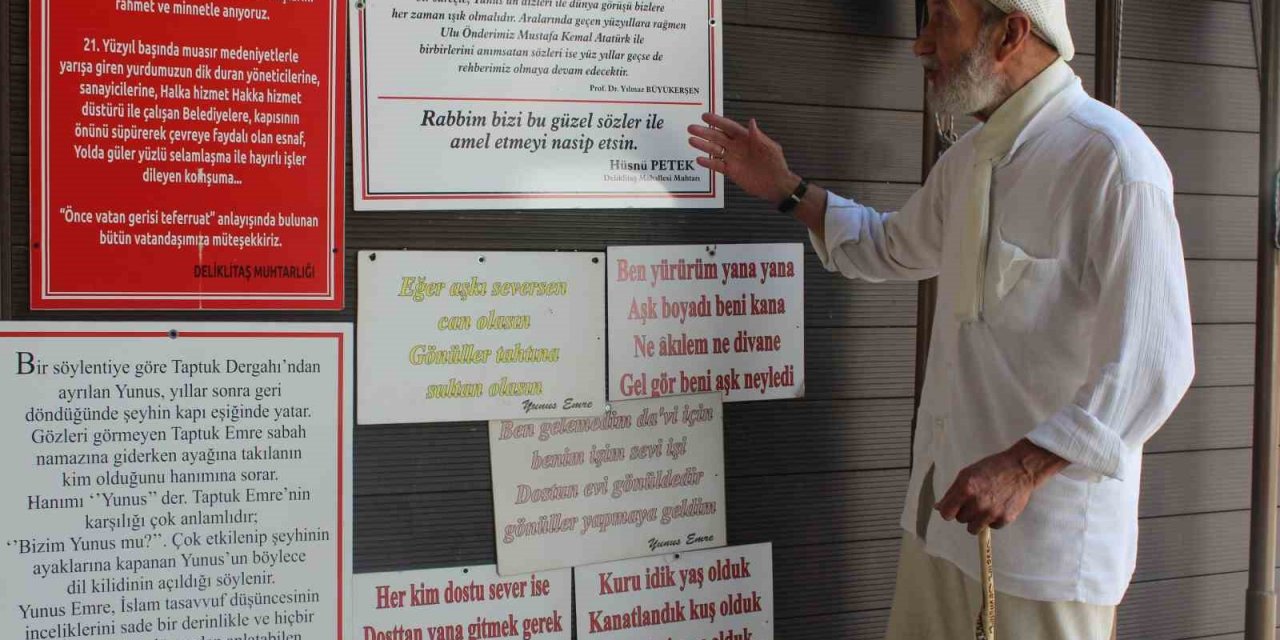 rahmet ve minnetle anıyoruz.
21. Yüzyıl başında muasır medeniyetlerle
yarışa giren yurdumuzun dik duran yöneticilerine,
sanayicilerine, Halka hizmet Hakka hizmet
düstürü ile çalışan Belediyelere, kapısının
önünü süpürerek çevreye Faydalı olan esnaf,
Yolda güler yüzlü selamlaşma ile hayırlı işler
dileyen komşuma...
“Önce vatan gerisi teferruat” anlayışında bulunan
bütün vatandaşımıza müteşekkiriz.
DELİKLİTAŞ MUHTARLIĞI
Yunus'un dizleri ile dünya görüşü bizlere
her zaman ışık olmalıdır. Aralarında geçen yüzyıllara rağmen
Ulu Önderimiz Mustafa Kemal Atatürk ile
birbirlerini anımsatan sözleri ise yüz yıllar geçse de
rehberimiz olmaya devam edecektir.
Prof. Dr. Yılmaz BÜYÜKERŞEN
Rabbim bizi bu güzel sözler ile
amel etmeyi nasip etsin.
Hüsnü PETEK
Deliklitaş Mahallesi Muhtarı
Eğer aşkı seversen
can olasın
Gönüller tahtına
sultan olasın
Yunus Emre
Ben yürürüm yana yana
Aşk boyadı beni kana
Ne âkılem ne divane
Gel gör beni aşk neyledi
Ben gelemedim da'vi için
benim işim sevi işi
Dostan evi gönüldedir
gönüller yapmaya geldim
Yunus Emre
Her kim dostu severse ise
Dosttan yana gitmek gerek
Kuru idik yaş olduk
Kanatlandık kuş olduk
olduk
Bir söylentiye göre Taptuk Dergahı’ndan
ayrılan Yunus, yıllar sonra geri
döndüğünde şeyhin kapı eşiğinde yatar.
Gözleri görmeyen Taptuk Emre sabah
namazına giderken ayağına takılanın
kim olduğunu hanımına sorar.
Hanımı ‘’Yunus’’ der. Taptuk Emre’nin
karşılığı çok anlamlıdır;
‘’Bizim Yunus mu?’’. Çok etkilenip şeyhinin
ayaklarına kapanan Yunus’un böylece
dil kilidinin açıldığı söylenir.
Yunus Emre, İslam tasavvuf düşüncesinin
inceliklerini sade bir derinlikle ve hiçbir
anlatabilen